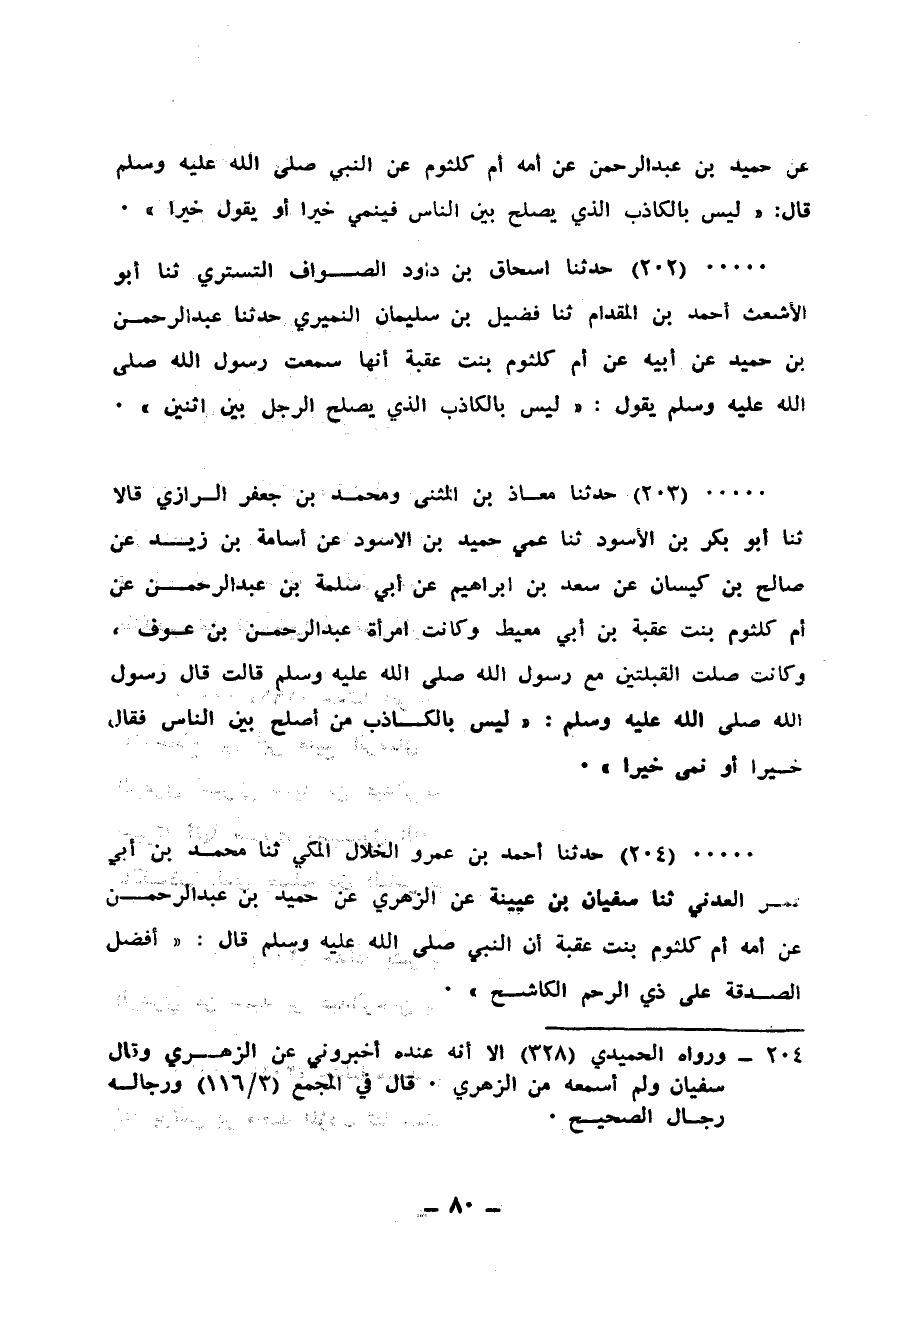 عن حميد بن عبدالرحمن عن أمه أم كلثوم عن النبي صلى الله عليه وسلم
قال: « ليس بالكاذب الذي يصلح بين الناس فينمي خيرا أو يقول خيرا » ٠
٠٠٠٠٠ (٢٠٢) حدثنا اسحاق بن داود الصواف التستري ثنا أبو
الأشعث أحمد بن المقدام ثنا فضيل بن سليمان النميري حدثنا عبدالرحمن
بن حميد عن أبيه عن أم كلثوم بنت عقبة أنها سمعت رسول الله صلى
الله عليه وسلم يقول : « ليس بالكاذب الذي يصلح الرجل بين اثنين » ٠
٠٠٠٠٠ (٢٠٣) حدثنا معاذ بن المثنى ومحمد بن جعفر الرازي قالا
ثنا أبو بكر بن الأسود ثنا عمي حميد بن الاسود عن أسامة بن زيد عن
صالح بن كيسان عن سعد بن ابراهيم عن أبي سلمة بن عبدالرحمن عن
أم كلثوم بنت عقبة بن أبي معيط وكانت امرأة عبدالرحمن بن عوف ،
وكانت صلت القبلتين مع رسول الله صلى الله عليه وسلم قالت قال رسول
الله صلى الله عليه وسلم : « ليس بالكاذب من أصلح بين الناس فقال
خيرا أو نمى خيرا » ٠
٠٠٠٠٠ (٢٠٤) حدثنا أحمد بن عمرو الخلال المكي ثنا محمد بن أبي
عمر العدني ثنا سفيان بن عيينة عن الزهري عن حميد بن عبدالرحمن
عن أمه أم كلثوم بنت عقبة أن النبي صلى الله عليه وسلم قال : « أفضل
الصدقة على ذي الرحم الكاشح » ٠
٢٠٤ ـ ورواه الحميدي (٣٢٨) الا أنه عنده أخبروني عن الزهري وقال
سفيان ولم أسمعه من الزهري ٠ قال في المجمع (١١٦/٣) ورجاله
رجال الصحيح ٠
ـ ٨٠ ـ